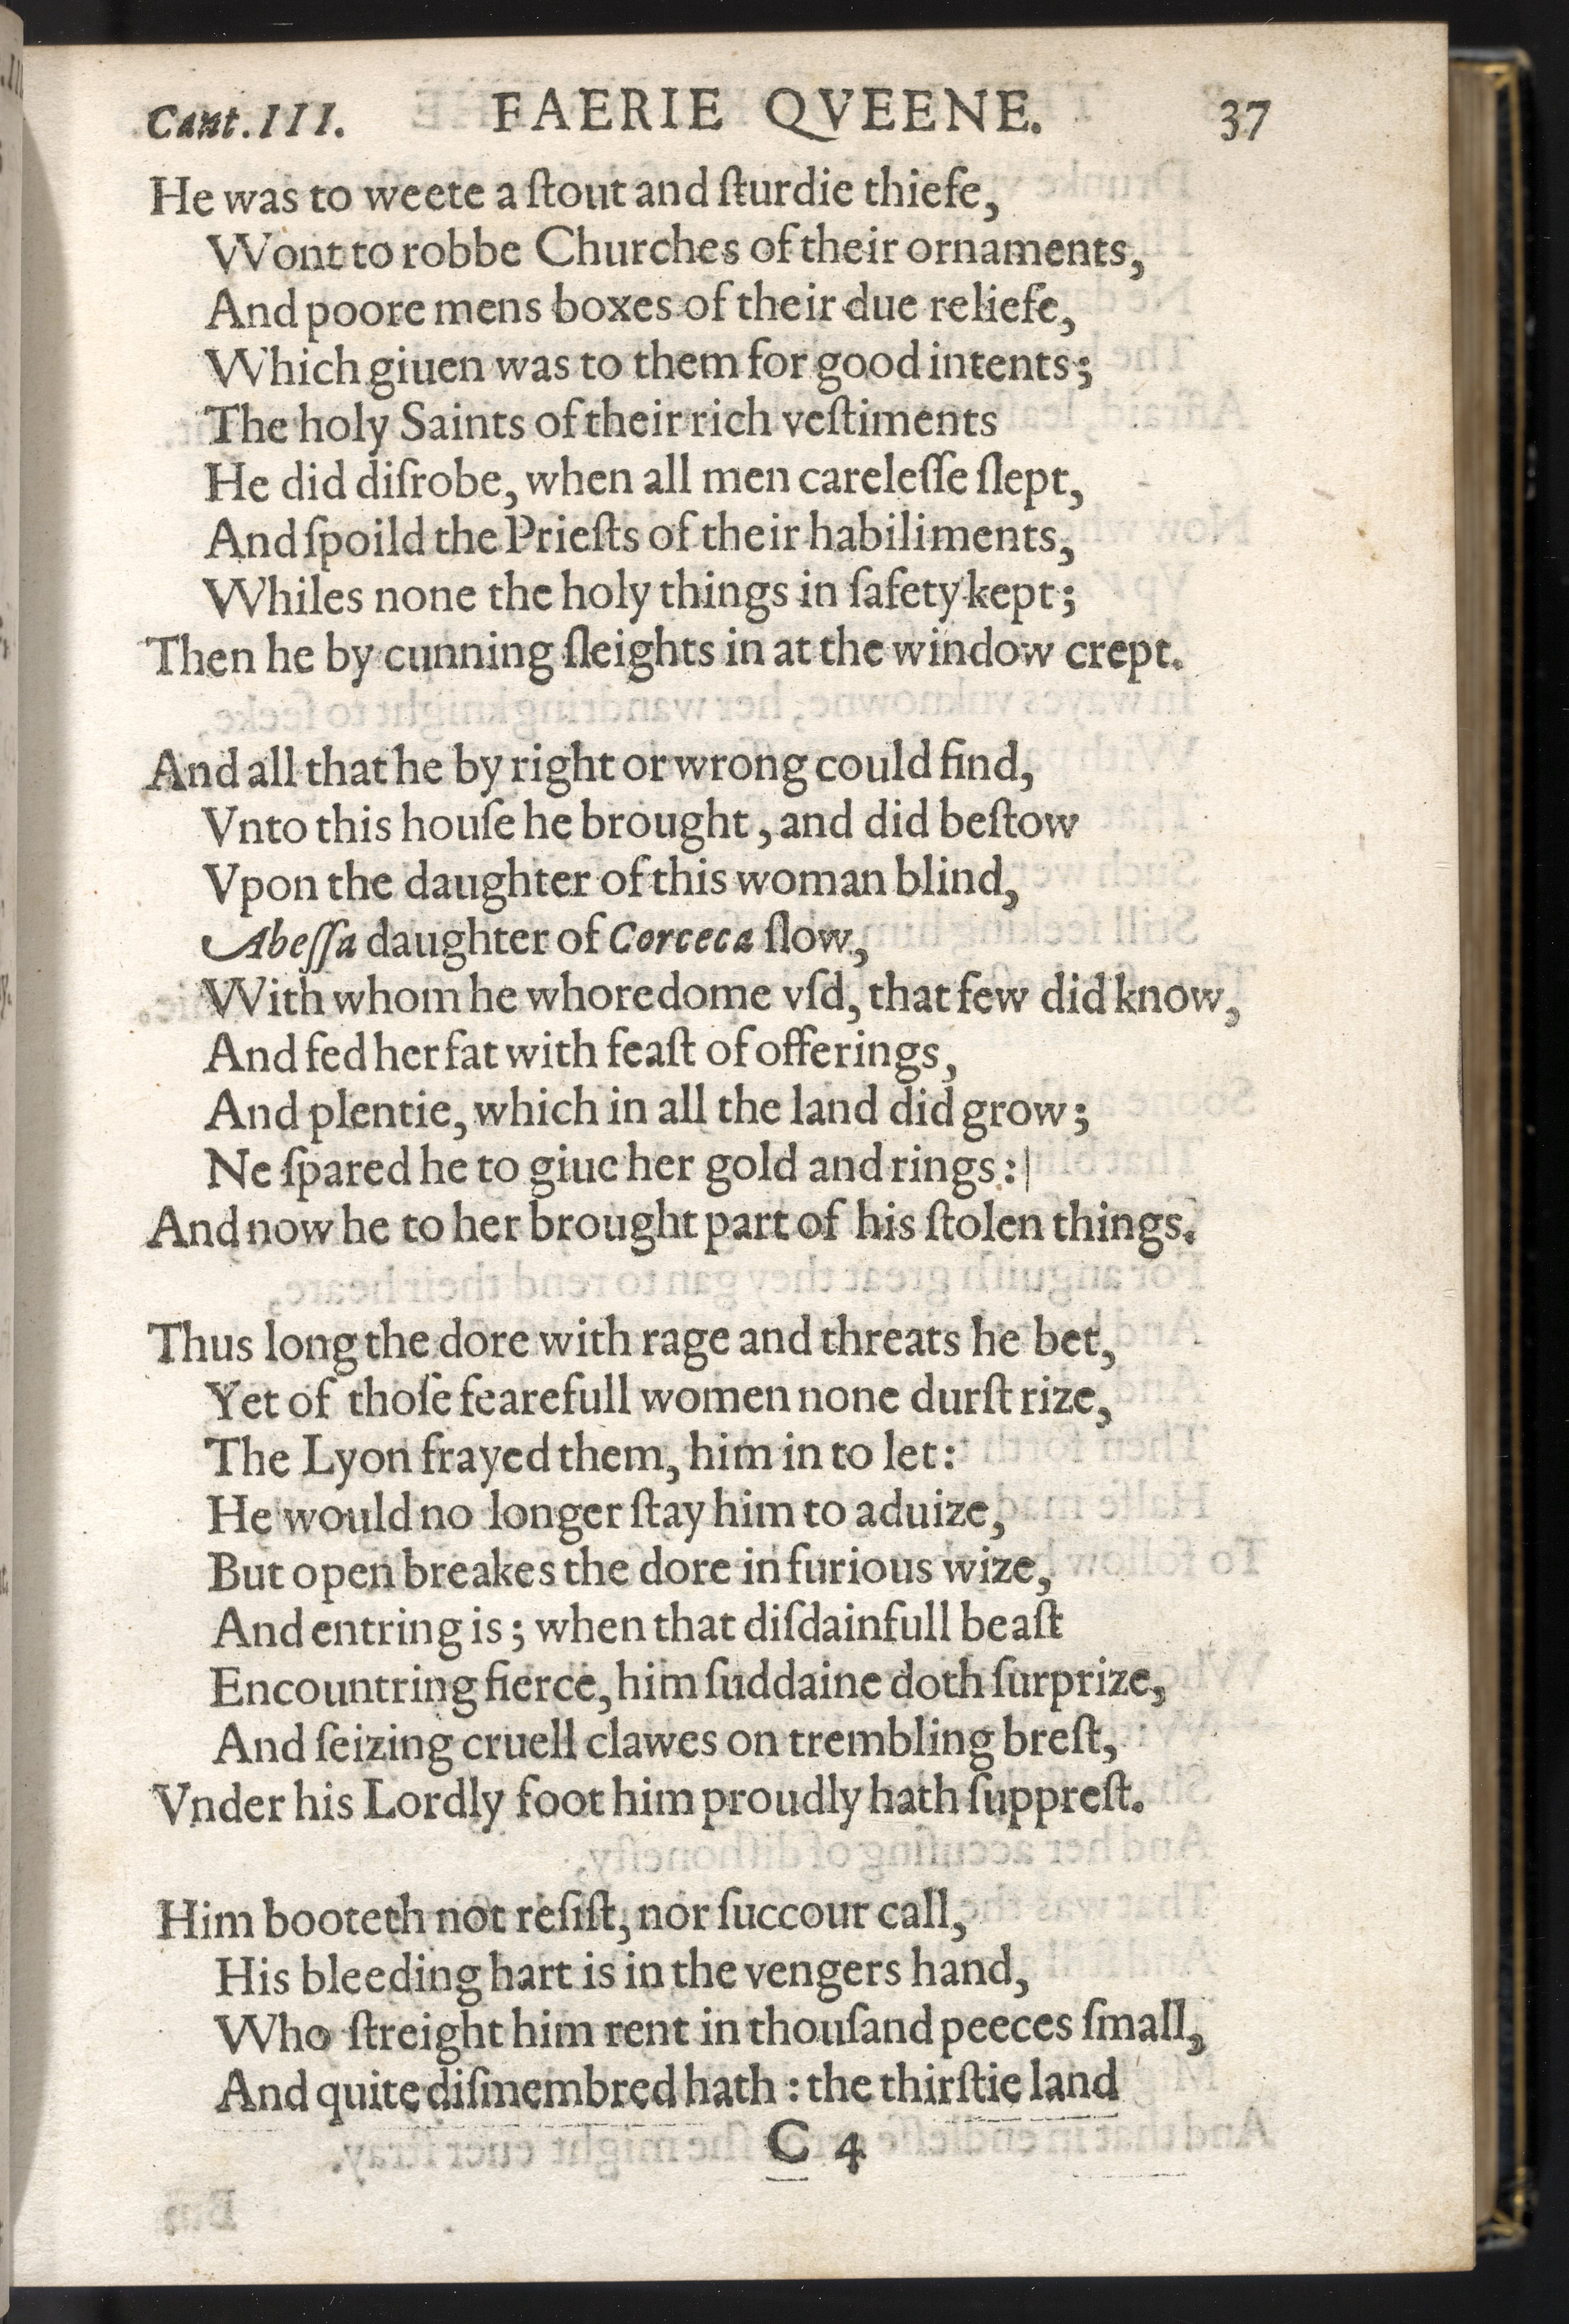 Cant. III. FAERIE QVEENE. 37
He was to weete a ſtout and ſturdie thiefe,
Wont to robbe Churches of their ornaments,
And poore mens boxes of their due reliefe,
Which giuen was to them for good intents;
The holy Saints of their rich veſtiments
He did diſrobe, when all men careleſſe ſlept,
And ſpoild the Prieſts of their habiliments,
Whiles none the holy things in ſafety kept;
Then he by cunning ſleights in at the window crept.
And all that he by right or wrong could find,
Vnto this houſe he brought, and did beſtow
Vpon the daughter of this woman blind,
Abeſſa daughter of Corceca ſlow,
With whom he whoredome vſd, that few did know,
And fed her fat with feaſt of offerings,
And plentie, which in all the land did grow;
Ne ſpared he to giue her gold and rings:
And now he to her brought part of his ſtolen things.
Thus long the dore with rage and threats he bet,
Yet of thoſe fearefull women none durſt rize,
The Lyon frayed them, him in to let:
He would no longer ſtay him to aduize,
But open breakes the dore in furious wize,
And entring is; when that diſdainfull beaſt
Encountring fierce, him ſuddaine doth ſurprize,
And ſeizing cruell clawes on trembling breſt,
Vnder his Lordly foot him proudly hath ſuppreſt.
Him booteth not reſiſt, nor ſuccour call,
His bleeding hart is in the vengers hand,
Who ſtreight him rent in thouſand peeces ſmall,
And quite diſmembred hath: the thirſtie land
C 4